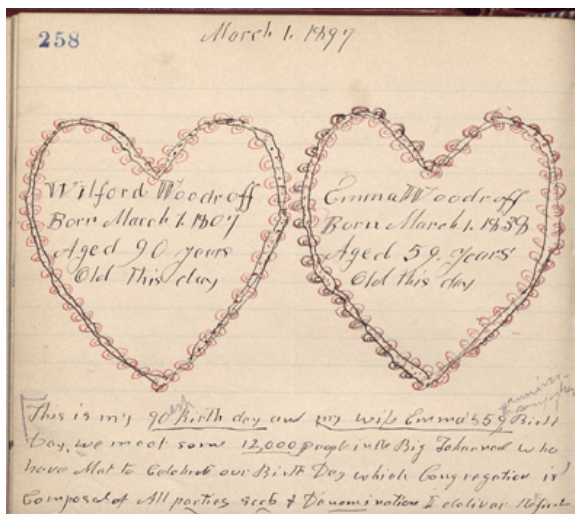 258
March 1. 1897
Wilford Woodruff
Born March 1. 1807
Aged 90 years
Old This day
Emma Woodruff
Born March 1. 1838
Aged 59. years
Old this day
This is my 90th Birth day and my wife Emma's 59 Birth
Day, we meet some 12,000 people in the Big Tabernacl who
have Met to Celebrate our Birth Day which Congregation is
Composed of All parties Sects & Denomination I deliver